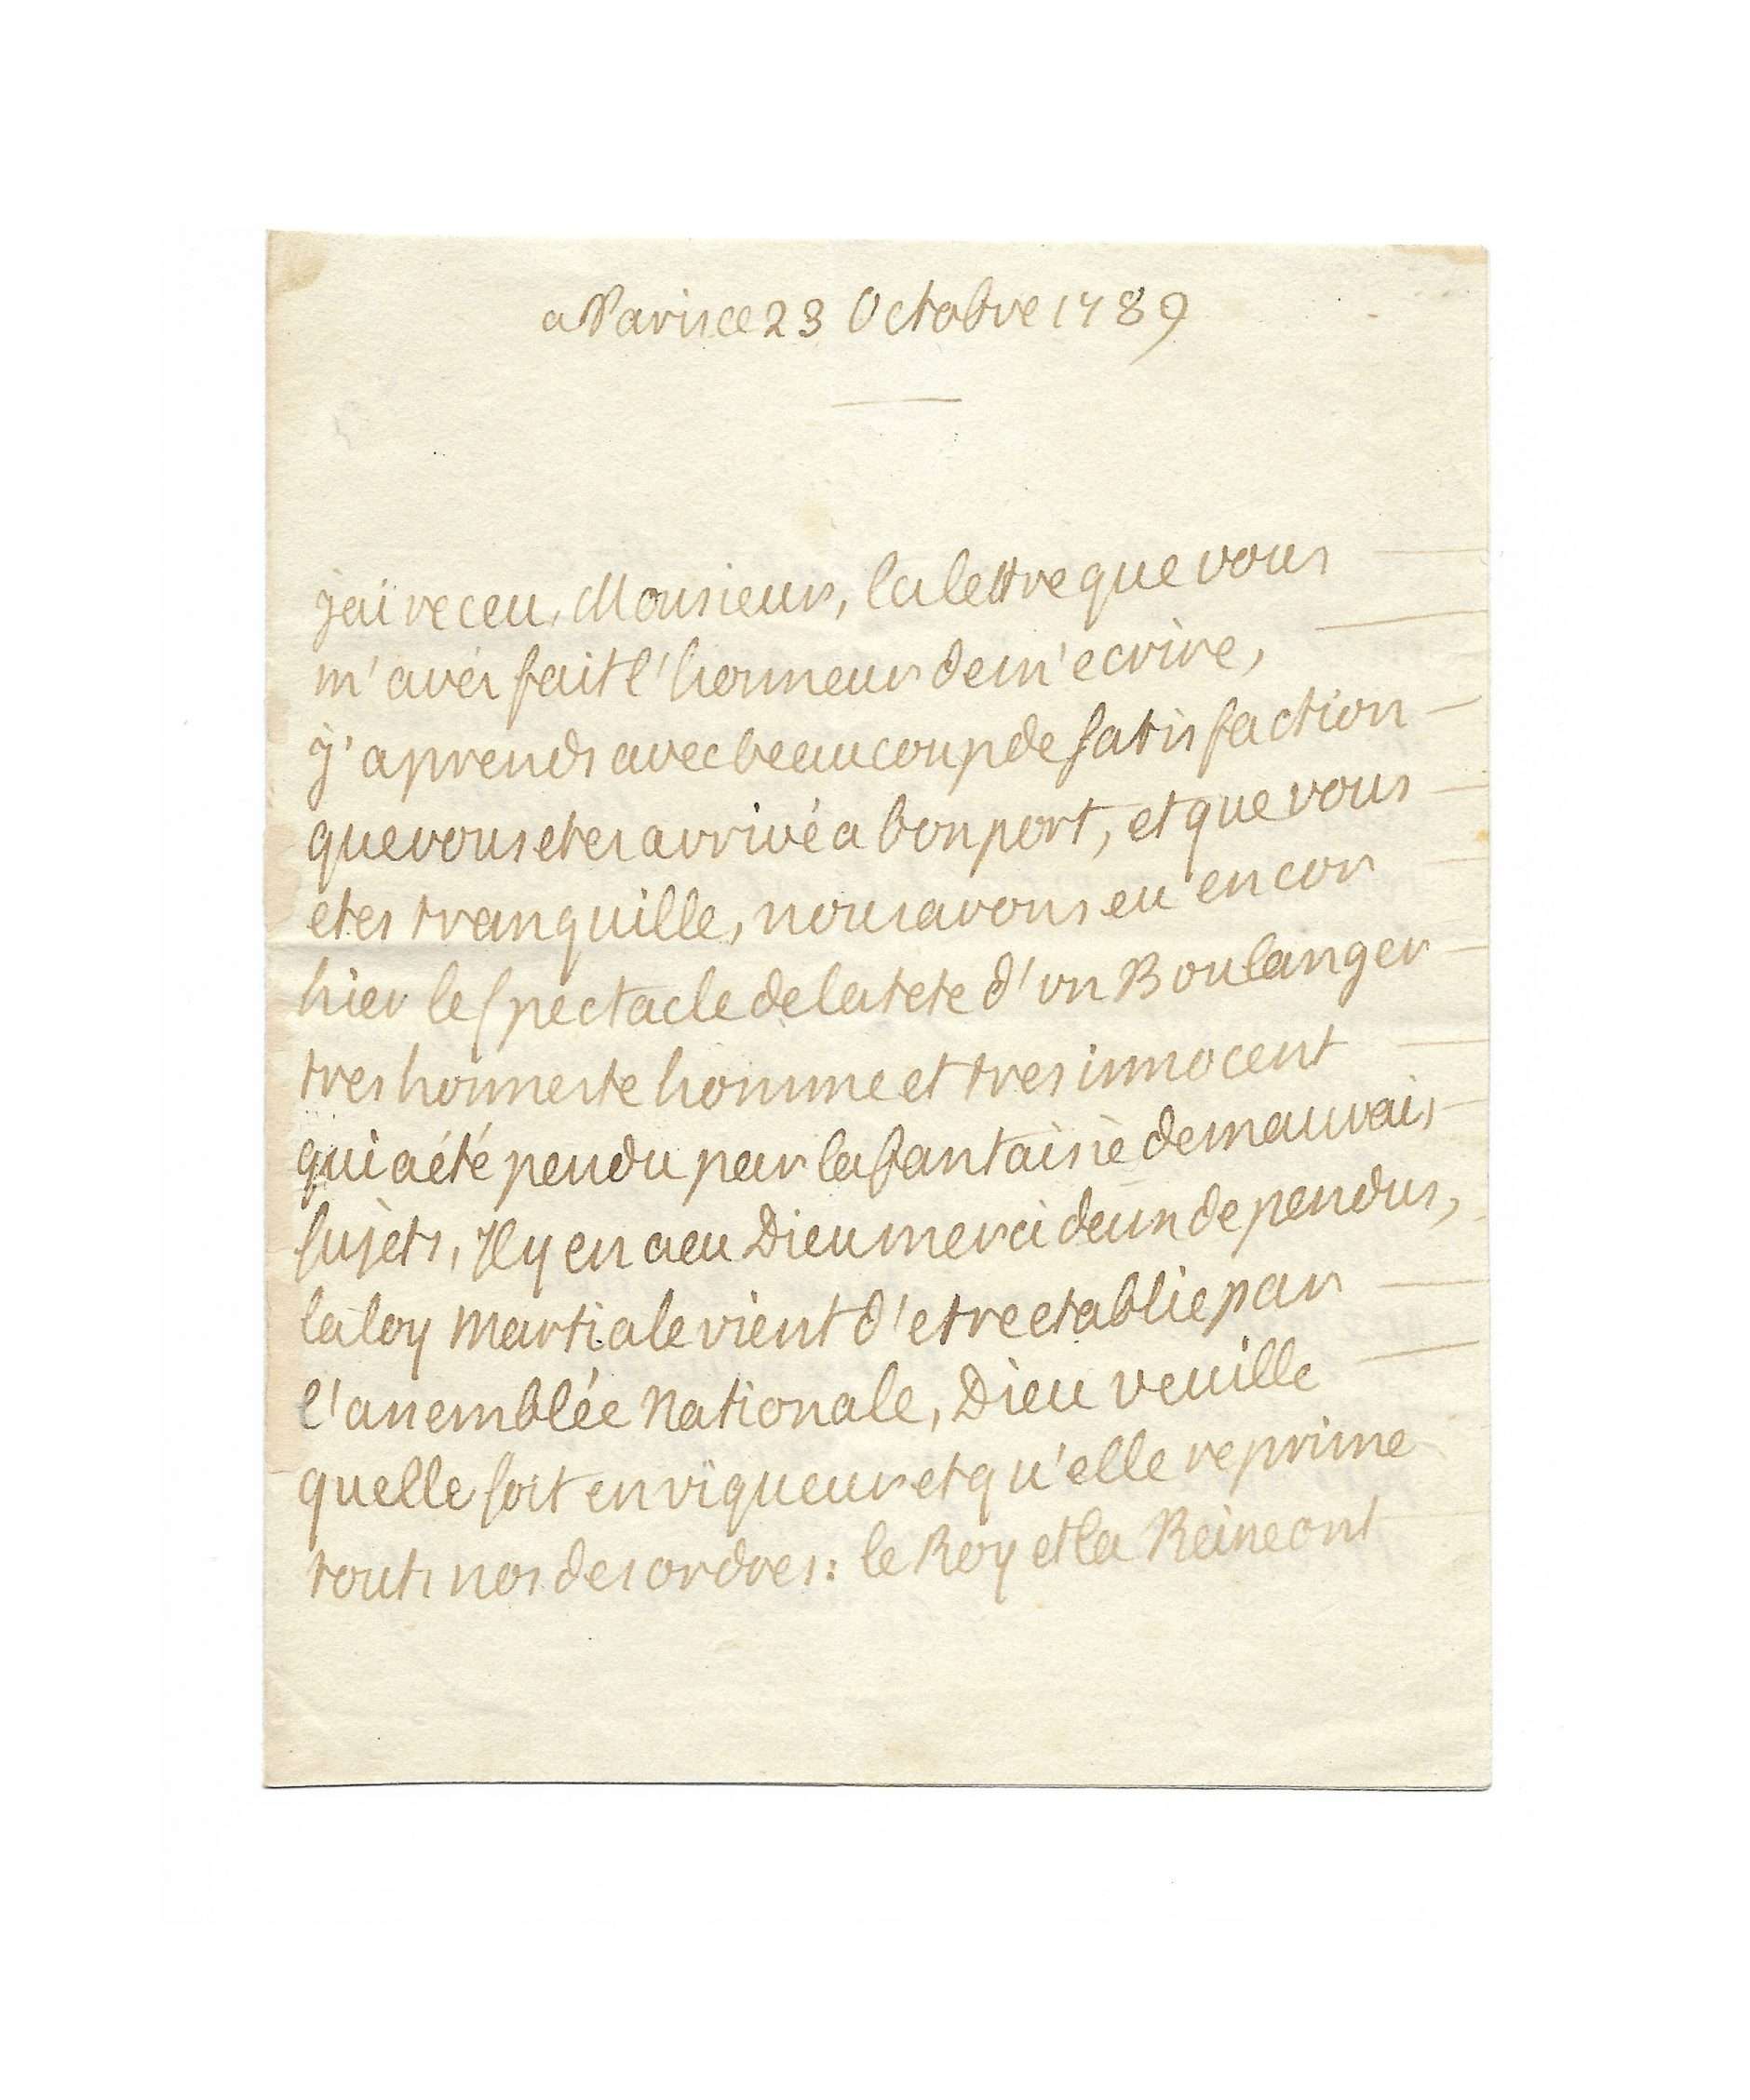 a Paris ce 23 Octobre 1789
j'ai receu, Monsieur, la lettre que vous
m'avés fait l'honneur de m'ecrire,
j'aprends avec beaucoup de satisfaction
que vous etes arrivé a bon port, et que vous
etes tranquille, nous avons eu encor
hier le spectacle de la tete d'un Boulanger
tres honneste homme et tres innocent
qui a été pendu par la fantaisie de mauvais
sujets, Il y en a eu Dieu merci deux de pendus,
la loy martiale vient d'etre etablie par
l'assemblée Nationale, Dieu veuille
quelle soit en vigueur et qu'elle reprime
touts nos desordres: le Roy et la Reine ont